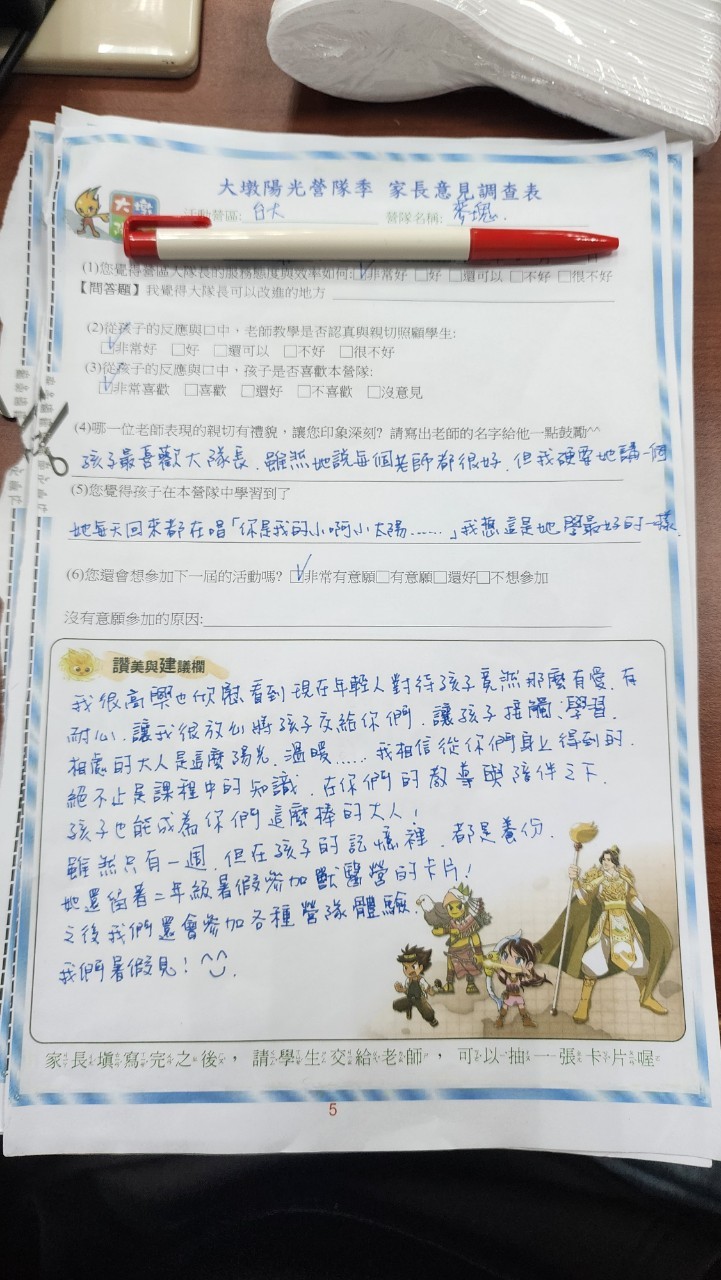 大墩陽光營隊季 家長意見調查表
大墩
活動營區: 台大 營隊名稱:
(1)您覺得營區大隊長的服務態度與效率如何:☑非常好 □好 □還可以 □不好 □很不好
【問答題】我覺得大隊長可以改進的地方
(2)從孩子的反應與口中，老師教學是否認真與親切照顧學生:
☑非常好 □好 □還可以 □不好 □很不好
(3)從孩子的反應與口中，孩子是否喜歡本營隊:
☑非常喜歡 □喜歡 □還好 □不喜歡 □沒意見
(4)哪一位老師表現的親切有禮貌，讓您印象深刻? 請寫出老師的名字給他一點鼓勵^^
孩子最喜歡大隊長.雖然她說每個老師都很好.但我硬要她講一個
(5)您覺得孩子在本營隊中學習到了
她每天回來都在唱「你是我的小啊小太陽……」我想這是她學最好的一樣.
(6)您還會想參加下一屆的活動嗎? ☑非常有意願□有意願□還好□不想參加
沒有意願參加的原因:
讚美與建議欄
我很高興也欣慰看到現在年輕人對待孩子竟然那麼有愛.有
耐心.讓我很放心將孩子交給你們.讓孩子接觸、學習.
相處的大人是這麼陽光.溫暖……我相信從你們身上得到的.
絕不止是課程中的知識.在你們的教導與陪伴之下.
孩子也能成為你們這麼棒的大人!
雖然只有一週.但在孩子的記憶裡.都是養份.
她還留著二年級暑假參加獸醫營的卡片!
之後我們還會參加各種營隊體驗.
我們暑假見! ^^.
家長填寫完之後，請學生交給老師，可以抽一張卡片喔
5